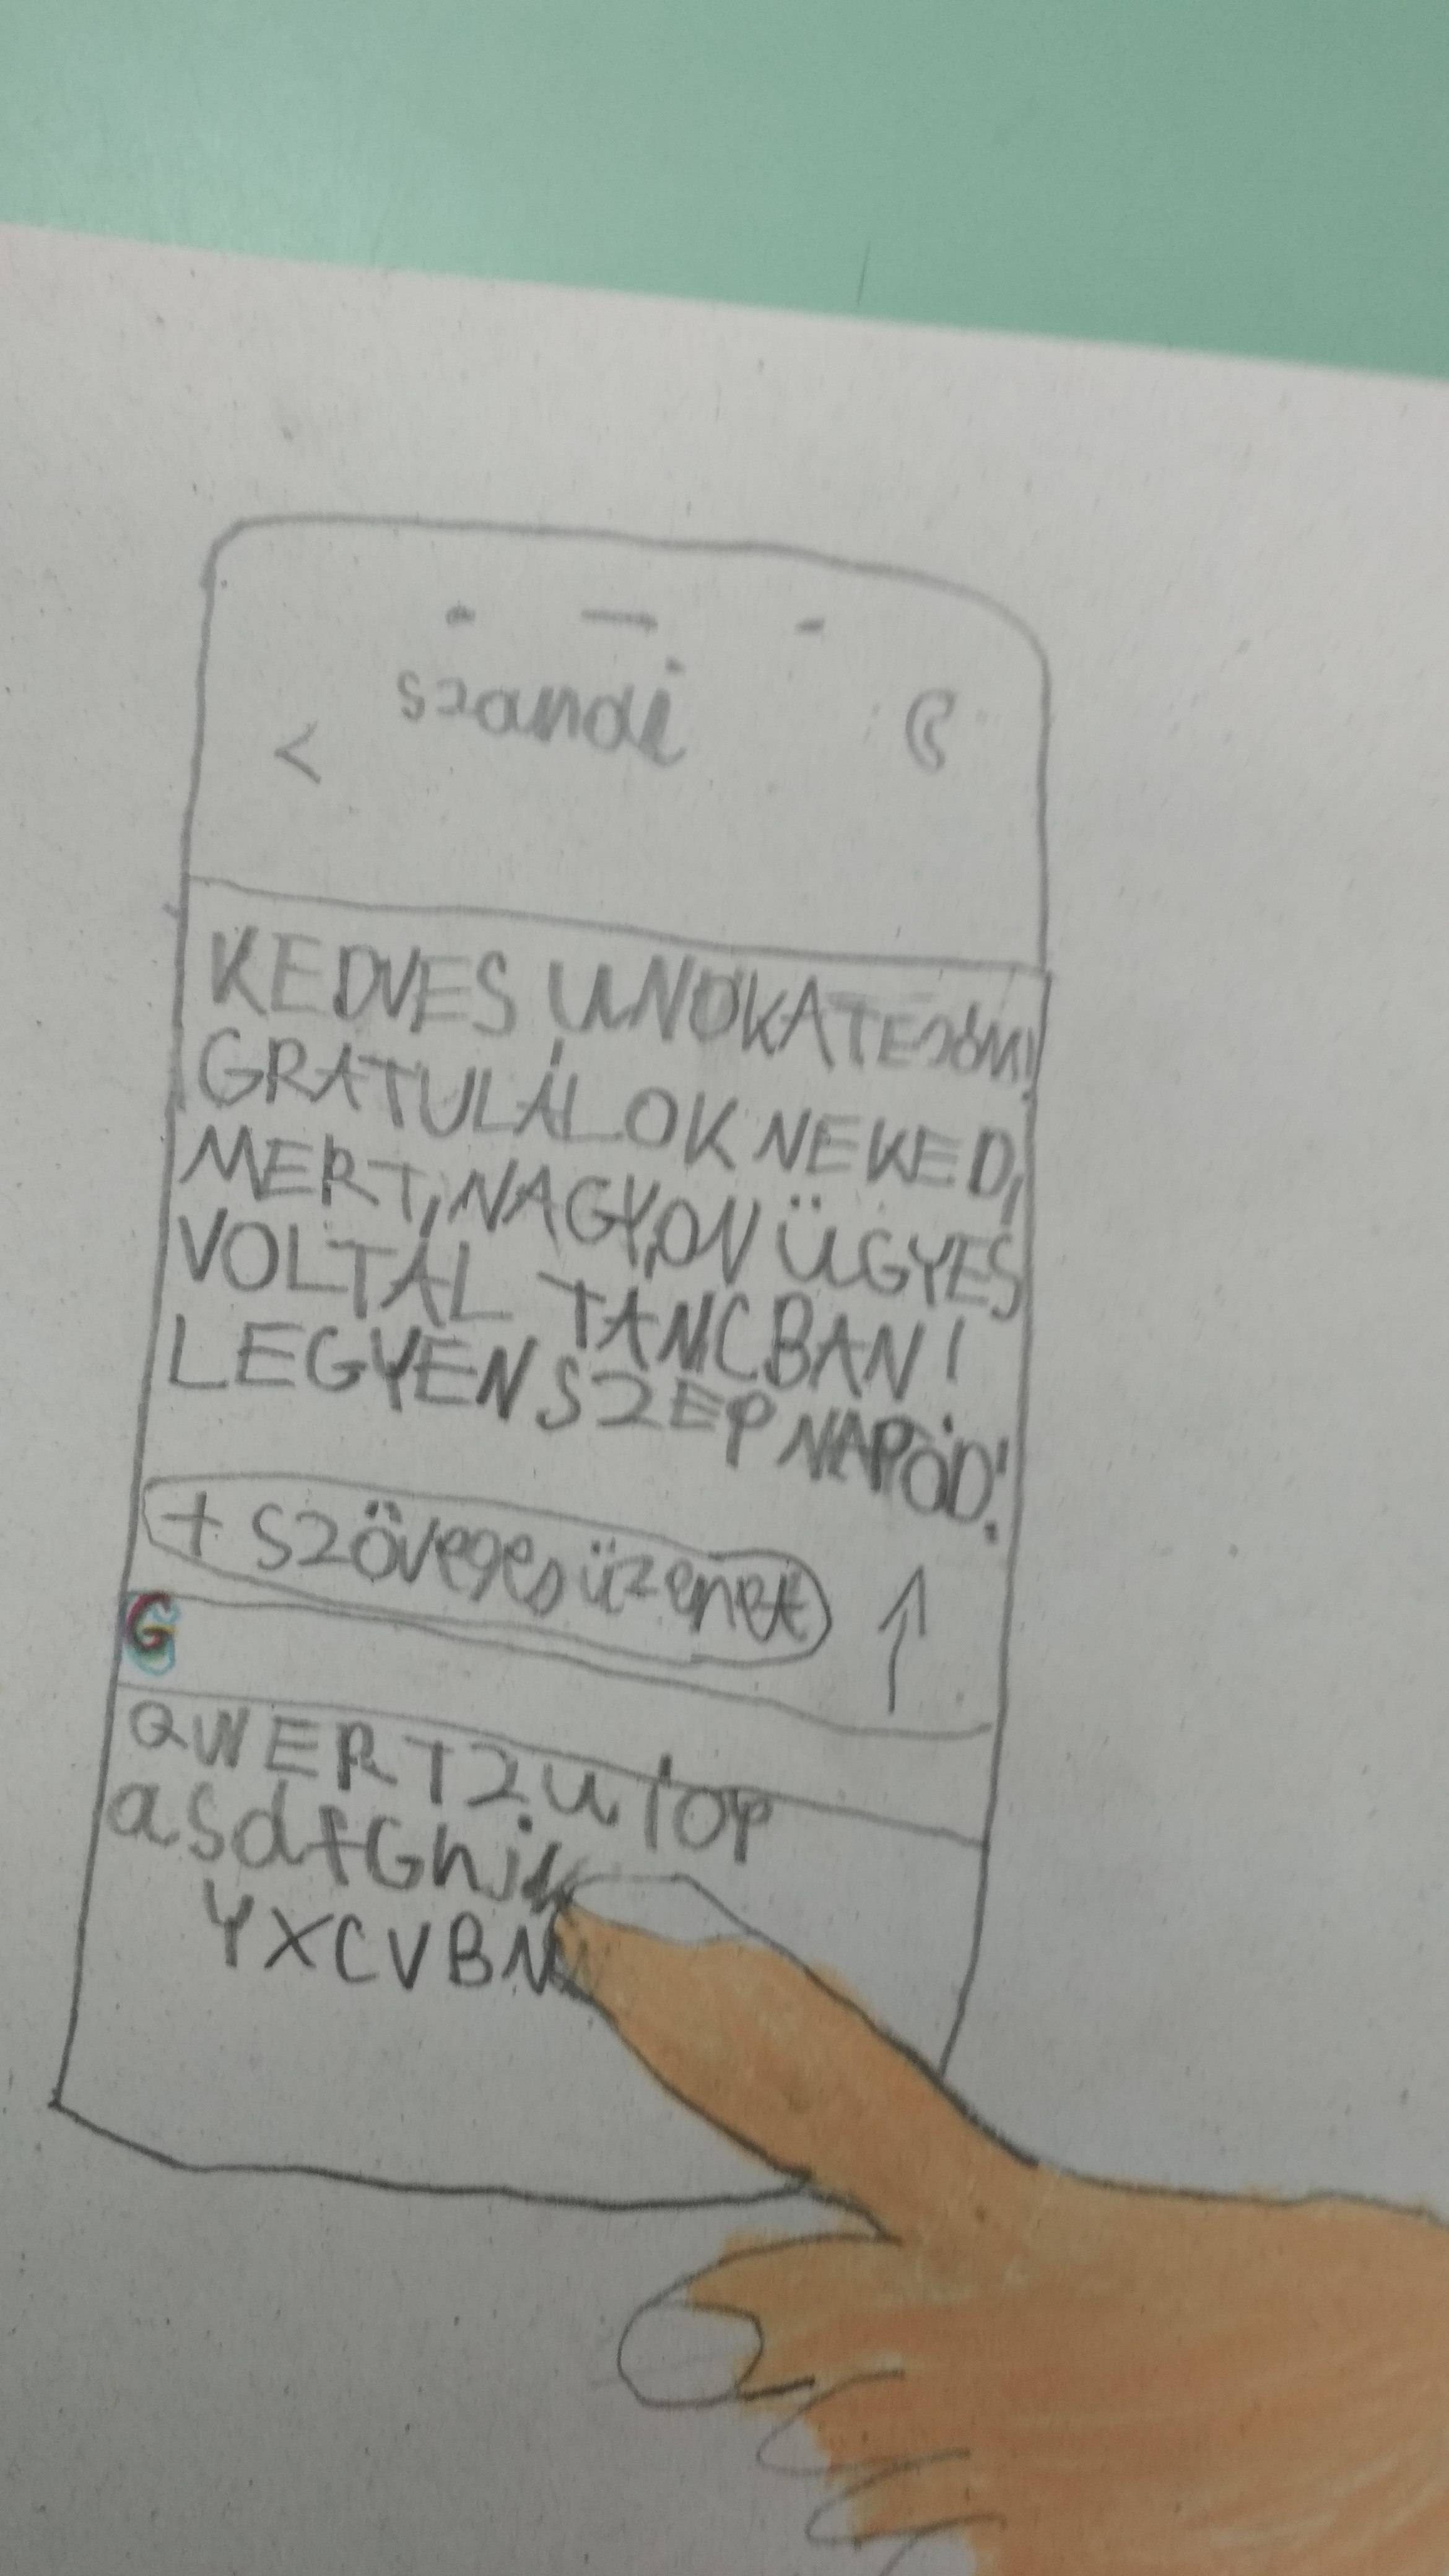 szandi
KEDVES UNOKATESÓM!
GRATULÁLOK NEKED,
MERT, NAGYON ÜGYES
VOLTÁL TANCBAN!
LEGYEN SZEP NAPOD!
+ szöveges üzenet
G
QWERTZUIOP
asdfGhjk
YXCVBN